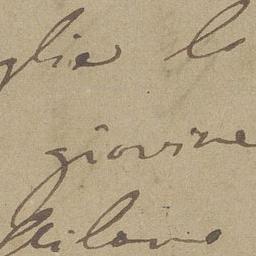 glie l
giovine
Milano